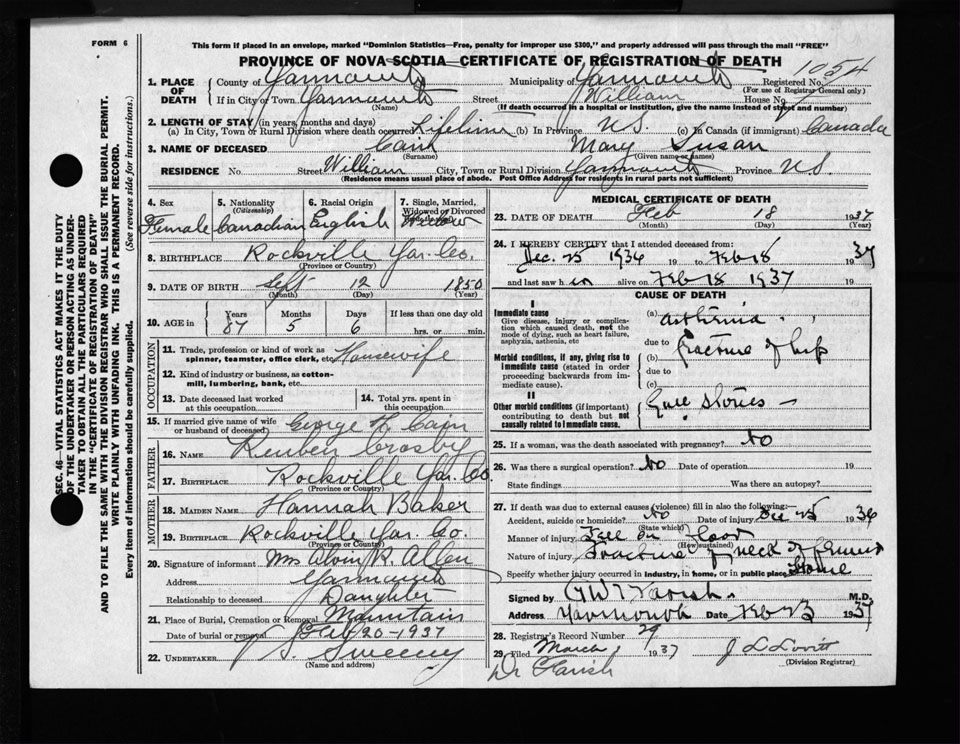 FORM 6
This form if placed in an envelope, marked "Dominion Statistics—Free, penalty for improper use $300," and properly addressed will pass through the mail "FREE"
PROVINCE OF NOVA SCOTIA—CERTIFICATE OF REGISTRATION OF DEATH
1. PLACE OF DEATH County of Yarmouth Municipality of Yarmouth Registered No. 1054
(For use of Registrar General only)
If in City or Town Yarmouth Street William House No.
(Name) (If death occurred in a hospital or institution, give the name instead of street and number)
2. LENGTH OF STAY (in years, months and days)
(a) In City, Town or Rural Division where death occurred Lifetime (b) In Province N.S. (c) In Canada (if immigrant) Canada
3. NAME OF DECEASED Cain Mary Susan
(Surname) (Given name or names)
RESIDENCE No. Street William City, Town or Rural Division Yarmouth Province N.S.
(Residence means usual place of abode. Post Office Address for residents in rural parts not sufficient)
SEC. 46—VITAL STATISTICS ACT MAKES IT THE DUTY
OF THE UNDERTAKER OR PERSON ACTING AS UNDER-
TAKER TO OBTAIN ALL THE PARTICULARS REQUIRED
IN THE "CERTIFICATE OF REGISTRATION OF DEATH"
AND TO FILE THE SAME WITH THE DIVISION REGISTRAR WHO SHALL ISSUE THE BURIAL PERMIT.
WRITE PLAINLY WITH UNFADING INK. THIS IS A PERMANENT RECORD.
Every item of information should be carefully supplied. (See reverse side for instructions.)
4. Sex 5. Nationality (Citizenship) 6. Racial Origin 7. Single, Married, Widowed or Divorced
Female Canadian English Widow
8. BIRTHPLACE Rockville Yar. Co.
(Province or Country)
9. DATE OF BIRTH Sept 12 1850
(Month) (Day) (Year)
10. AGE in Years Months Days If less than one day old
87 5 6 hrs. or min.
OCCUPATION
11. Trade, profession or kind of work as spinner, teamster, office clerk, etc. Housewife
12. Kind of industry or business, as cotton-mill, lumbering, bank, etc.
13. Date deceased last worked at this occupation 14. Total yrs. spent in this occupation
15. If married give name of wife or husband of deceased George H. Cain
FATHER
16. Name Reuben Crosby
17. Birthplace Rockville Yar. Co.
(Province or Country)
MOTHER
18. Maiden Name Hannah Baker
19. Birthplace Rockville Yar. Co.
(Province or Country)
20. Signature of informant Mrs Alvin R. Allen
Address Yarmouth
Relationship to deceased Daughter
21. Place of Burial, Cremation or Removal Mountain
Date of burial or removal Feb 20-1937
22. Undertaker Sweeny
(Name and address)
MEDICAL CERTIFICATE OF DEATH
23. DATE OF DEATH Feb 18 1937
(Month) (Day) (Year)
24. I HEREBY CERTIFY that I attended deceased from:
Dec. 25 1936 to Feb 18 1937
and last saw h alive on Feb 18 1937
CAUSE OF DEATH
I
Immediate cause
Give disease, injury or complication which caused death, not the mode of dying, such as heart failure, asphyxia, asthenia, etc
(a) asthenia
due to
Morbid conditions, if any, giving rise to immediate cause (stated in order proceeding backwards from immediate cause).
(b) fracture of hip
due to
(c)
II
Other morbid conditions (if important) contributing to death but not causally related to immediate cause.
Gall stones —
25. If a woman, was the death associated with pregnancy? No
26. Was there a surgical operation? No Date of operation 19
State findings Was there an autopsy?
27. If death was due to external causes (violence) fill in also the following:—
Accident, suicide or homicide? No Date of injury Dec 25 1936
(State which)
Manner of injury Fell on floor
(How sustained)
Nature of injury Fracture of neck of femur
Specify whether injury occurred in industry, in home, or in public place Home
Signed by M.D.
Address Yarmouth Date Feb 23 1937
28. Registrar's Record Number 29
29. Filed March 1 1937 J L Lovitt
(Division Registrar)
Dr